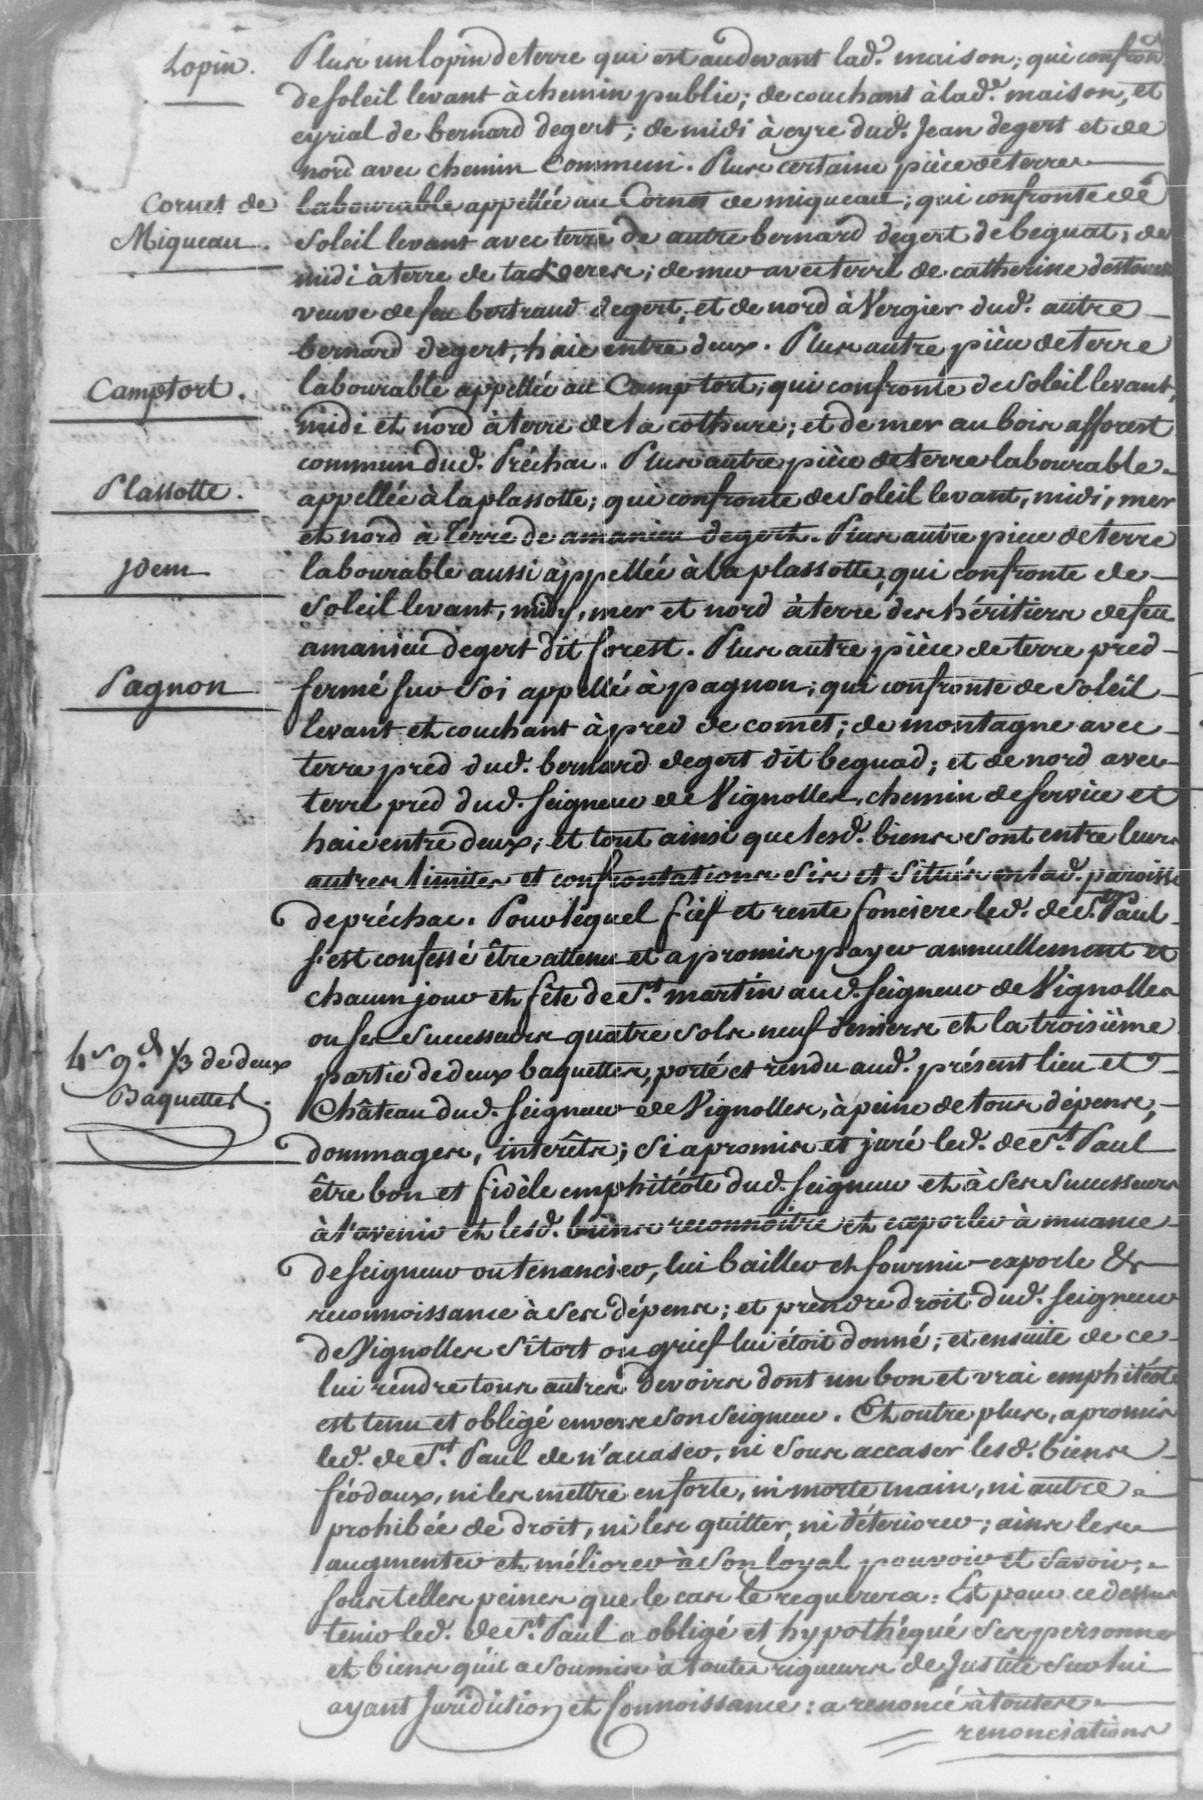 Lopin.
Plus un lopin de terre qui est au devant lad. maison; qui confron
de soleil levant à chemin public; de couchant à lad. maison, et
eyrial de bernard degert; de midi à eyre dud. Jean degert et de
nord avec chemin commun. Plus certaine pièce de terre
Cornet de
Miqueau.
labourable appellée au Cornet de miqueau; qui confronte de
soleil levant avec terre de autre bernard degert de beguat; de
midi à terre de ; de mer avec terre de catherine
veuve de feu bertrand degert, et de nord à Vergier dud. autre
bernard degert, haie entre deux. Plus autre pièce de terre
Camptort.
labourable appellée au Camptort; qui confronte de soleil levant,
midi et nord à terre de la cothure; et de mer au bois afforest
commun dud. Préchac. Plus autre pièce de terre labourable
Plassotte.
appellée à la plassotte; qui confronte de soleil levant, midi, mer
et nord à Terre de amanieu degert. Plus autre piece de terre
jdem
labourable aussi appellée à la plassotte, qui confronte de
soleil levant, midy, mer et nord à terre des héritiers de feu
amanieu degert dit forest. Plus autre pièce de terre pred
Pagnon
fermé sur soi appellé à pagnon; qui confronte de soleil
levant et couchant à pred de comet; de montagne avec
terre pred dud. bernard degert dit beguad; et de nord avec
terre pred dud. seigneur de Vignolles, chemin de service et
haie entre deux; et tout ainsi que lesd. biens sont entre leurs
autres limites et confrontations sis et situés en lad. paroisse
de préchac. Pour lequel fief et rente fonciere led. de St. Paul
s'est confessé être attenu et a promis payer annuellement et
chacun jour et fête de St. martin aud. seigneur de Vignolles
ou ses successeurs quatre sols neuf deniers et la troisième
4s 9d. 1/3 de deux
Baquettes.
partie de deux baquettes, porté et rendu aud. présent lieu et
Château dud. seigneur de Vignolles, à peine de tous dépens,
dommages, interêts; si a promis et juré led. de St. Paul
être bon et fidèle emphitéote dud. seigneur et à ses successeurs
à l'avenir et lesd. biens reconnoitre et exporler à muance
de seigneur ou tenancier, lui bailler et fournir exporle &
reconnoissance à ses dépens; et prendre droit dud. seigneur
de Vignolles si tort ou grief lui étoit donné; et ensuite de ce
lui rendre tous autres devoirs dont un bon et vrai emphitéote
est tenu et obligé envers son seigneur. Et outre plus, a promis
led. de St. Paul de n'accaser, ni sous accaser lesd. biens
féodaux, ni les mettre en forte, ni morte main, ni autre
prohibée de droit, ni les quitter, ni déteriorer; ains les
augmenter et méliorer à son loyal pouvoir et savoir,
sous telles peines que le cas le requerera: Et pour ce dessus
tenir led. de St. Paul a obligé et hypothéqué ses personne
et biens qu'il a soumis à toutes rigueurs de Justice sur lui
ayant Juridiction et Connoissance: a renoncé à toutes
renonciations